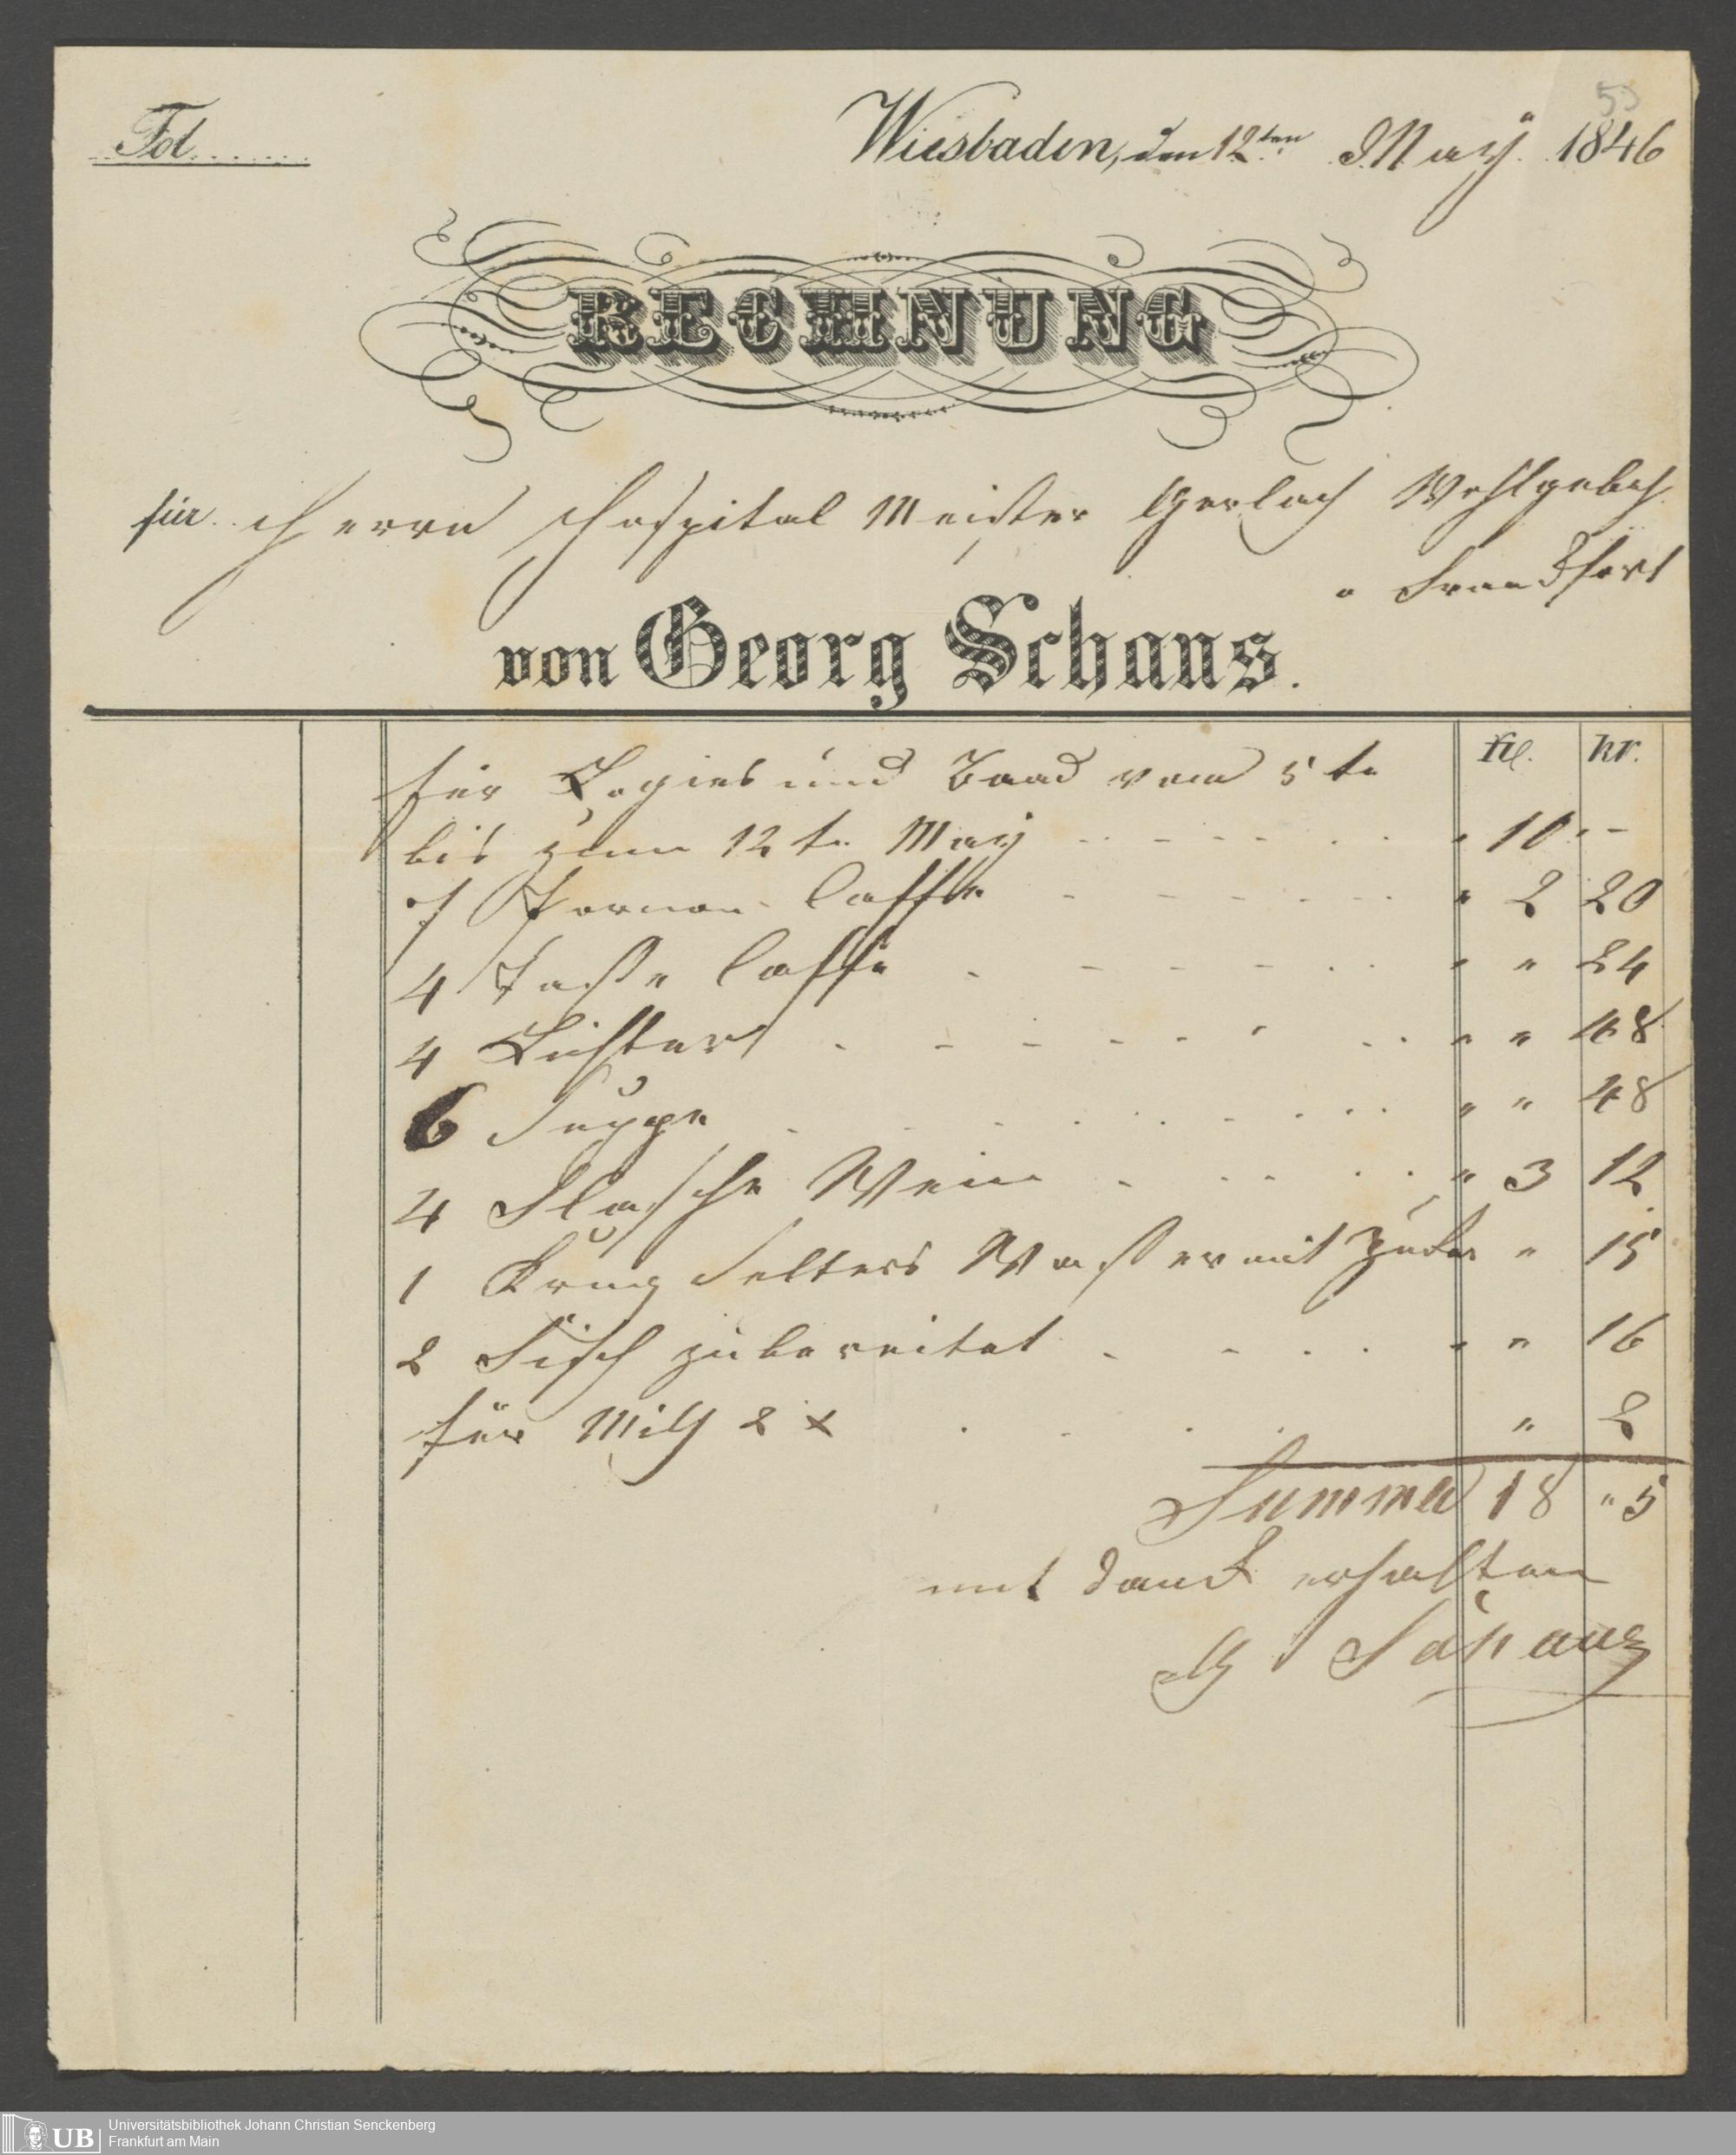 55
Fol.......
Wiesbaden, den 12ten May 1846
RECHNUNG
für Herrn Hospital Meister Gerlach Wohlgeb.
Franckfort
von Georg Schaus.
fl. kr.
für Logies und Baad vom 5te
bis zum 12te May 10 -
7 Caffe 2 20
4 Taße Caffe " 24
4 Lichter " 48
6 Suppe " 48
4 Flasche Wein 3 12
1 Krug Selters Waßer mit Zucker " 15
2 Fisch zubereitet " 16
für Milch 2 x " 2
Summa 18 " 5
mit Danck erhalten
G Schaus
UB Universitätsbibliothek Johann Christian Senckenberg
Frankfurt am Main